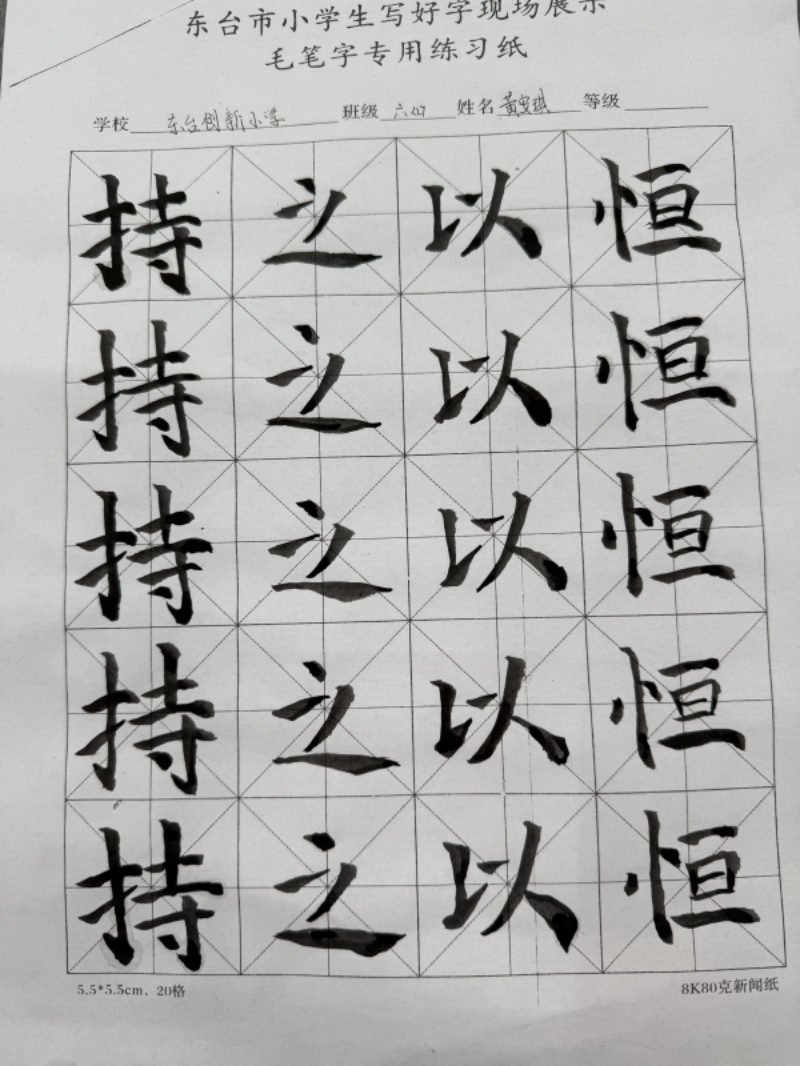 东台市小学生写好字现场展示
毛笔字专用练习纸
学校 东台创新小学 班级 六(4) 姓名 黄 琪 等级
持之以恒
持之以恒
持之以恒
持之以恒
持之以恒
5.5*5.5cm，20格 8K80克新闻纸